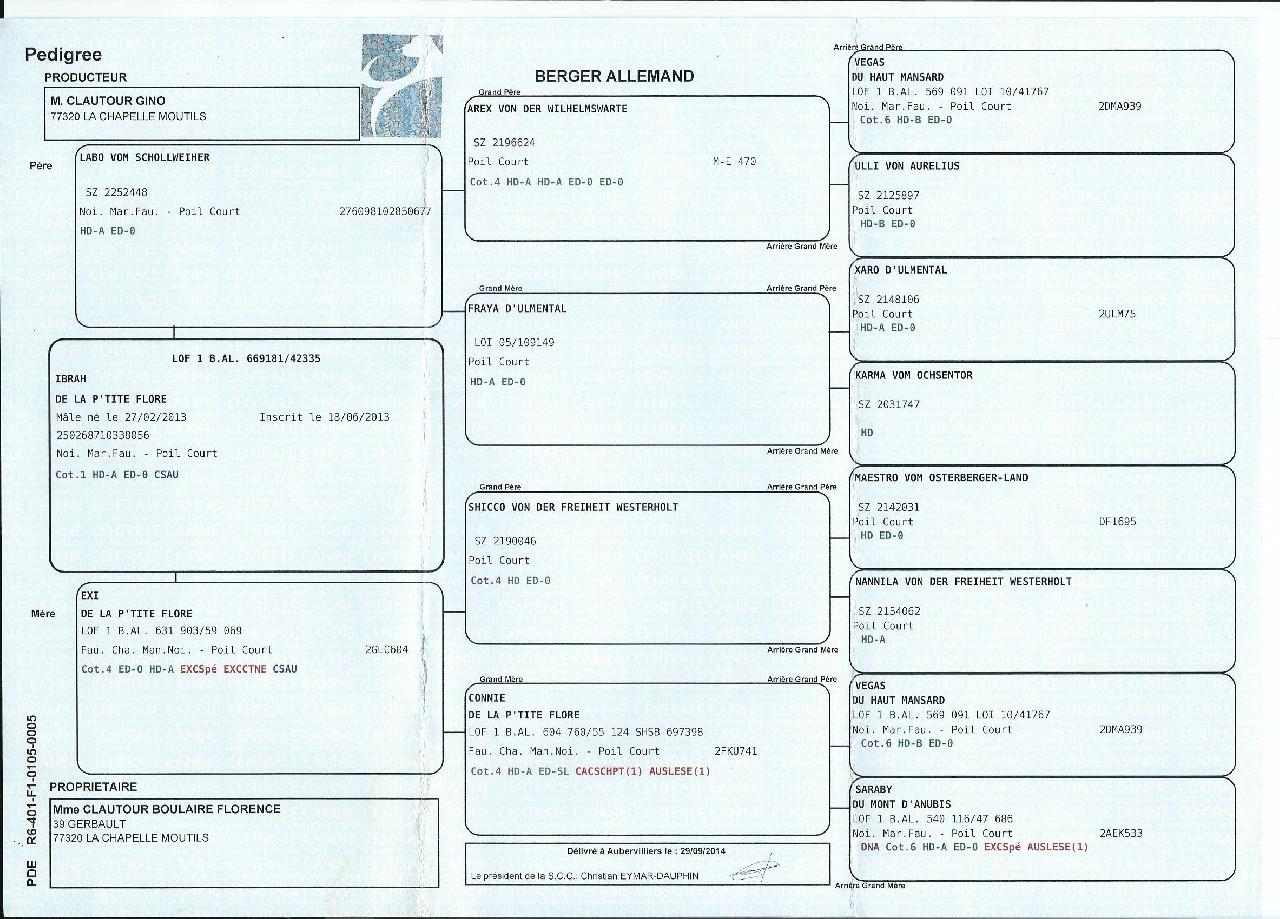 Pedigree
PRODUCTEUR
M. CLAUTOUR GINO
77320 LA CHAPELLE MOUTILS
BERGER ALLEMAND
Père
LABO VOM SCHOLLWEIHER
SZ 2252448
Noi. Mar.Fau. - Poil Court 276098102850677
HD-A ED-0
LOF 1 B.AL. 669181/42335
IBRAH
DE LA P'TITE FLORE
Mâle né le 27/02/2013 Inscrit le 18/06/2013
250268710338056
Noi. Mar.Fau. - Poil Court
Cot.1 HD-A ED-0 CSAU
Mère
EXI
DE LA P'TITE FLORE
LOF 1 B.AL. 631 903/59 069
Fau. Cha. Man.Noi. - Poil Court 2GLC604
Cot.4 ED-0 HD-A EXCSpé EXCCTNE CSAU
PROPRIETAIRE
Mme CLAUTOUR BOULAIRE FLORENCE
39 GERBAULT
77320 LA CHAPELLE MOUTILS
PDE R6-401-F1-0105-0005
Grand Père
AREX VON DER WILHELMSWARTE
SZ 2196624
Poil Court M-E 470
Cot.4 HD-A HD-A ED-0 ED-0
Grand Mère
FRAYA D'ULMENTAL
LOI 05/109149
Poil Court
HD-A ED-0
Grand Père
SHICCO VON DER FREIHEIT WESTERHOLT
SZ 2190046
Poil Court
Cot.4 HD ED-0
Grand Mère
CONNIE
DE LA P'TITE FLORE
LOF 1 B.AL. 604 760/55 124 SHSB 697398
Fau. Cha. Man.Noi. - Poil Court 2FKU741
Cot.4 HD-A ED-SL CACSCHPT(1) AUSLESE(1)
Délivré à Aubervilliers le : 29/09/2014
Le président de la S.C.C.: Christian EYMAR-DAUPHIN
Arrière Grand Père
VEGAS
DU HAUT MANSARD
LOF 1 B.AL. 569 091 LOI 10/41767
Noi. Mar.Fau. - Poil Court 2DMA939
Cot.6 HD-B ED-0
ULLI VON AURELIUS
SZ 2125897
Poil Court
HD-B ED-0
Arrière Grand Mère
Arrière Grand Père
XARO D'ULMENTAL
SZ 2148106
Poil Court 2ULM75
HD-A ED-0
KARMA VOM OCHSENTOR
SZ 2031747
HD
Arrière Grand Mère
Arrière Grand Père
MAESTRO VOM OSTERBERGER-LAND
SZ 2142031
Poil Court DF1695
HD ED-0
NANNILA VON DER FREIHEIT WESTERHOLT
SZ 2154062
Poil Court
HD-A
Arrière Grand Mère
Arrière Grand Père
VEGAS
DU HAUT MANSARD
LOF 1 B.AL. 569 091 LOI 10/41767
Noi. Mar.Fau. - Poil Court 2DMA939
Cot.6 HD-B ED-0
SARABY
DU MONT D'ANUBIS
LOF 1 B.AL. 540 116/47 686
Noi. Mar.Fau. - Poil Court 2AEK533
DNA Cot.6 HD-A ED-0 EXCSpé AUSLESE(1)
Arrière Grand Mère